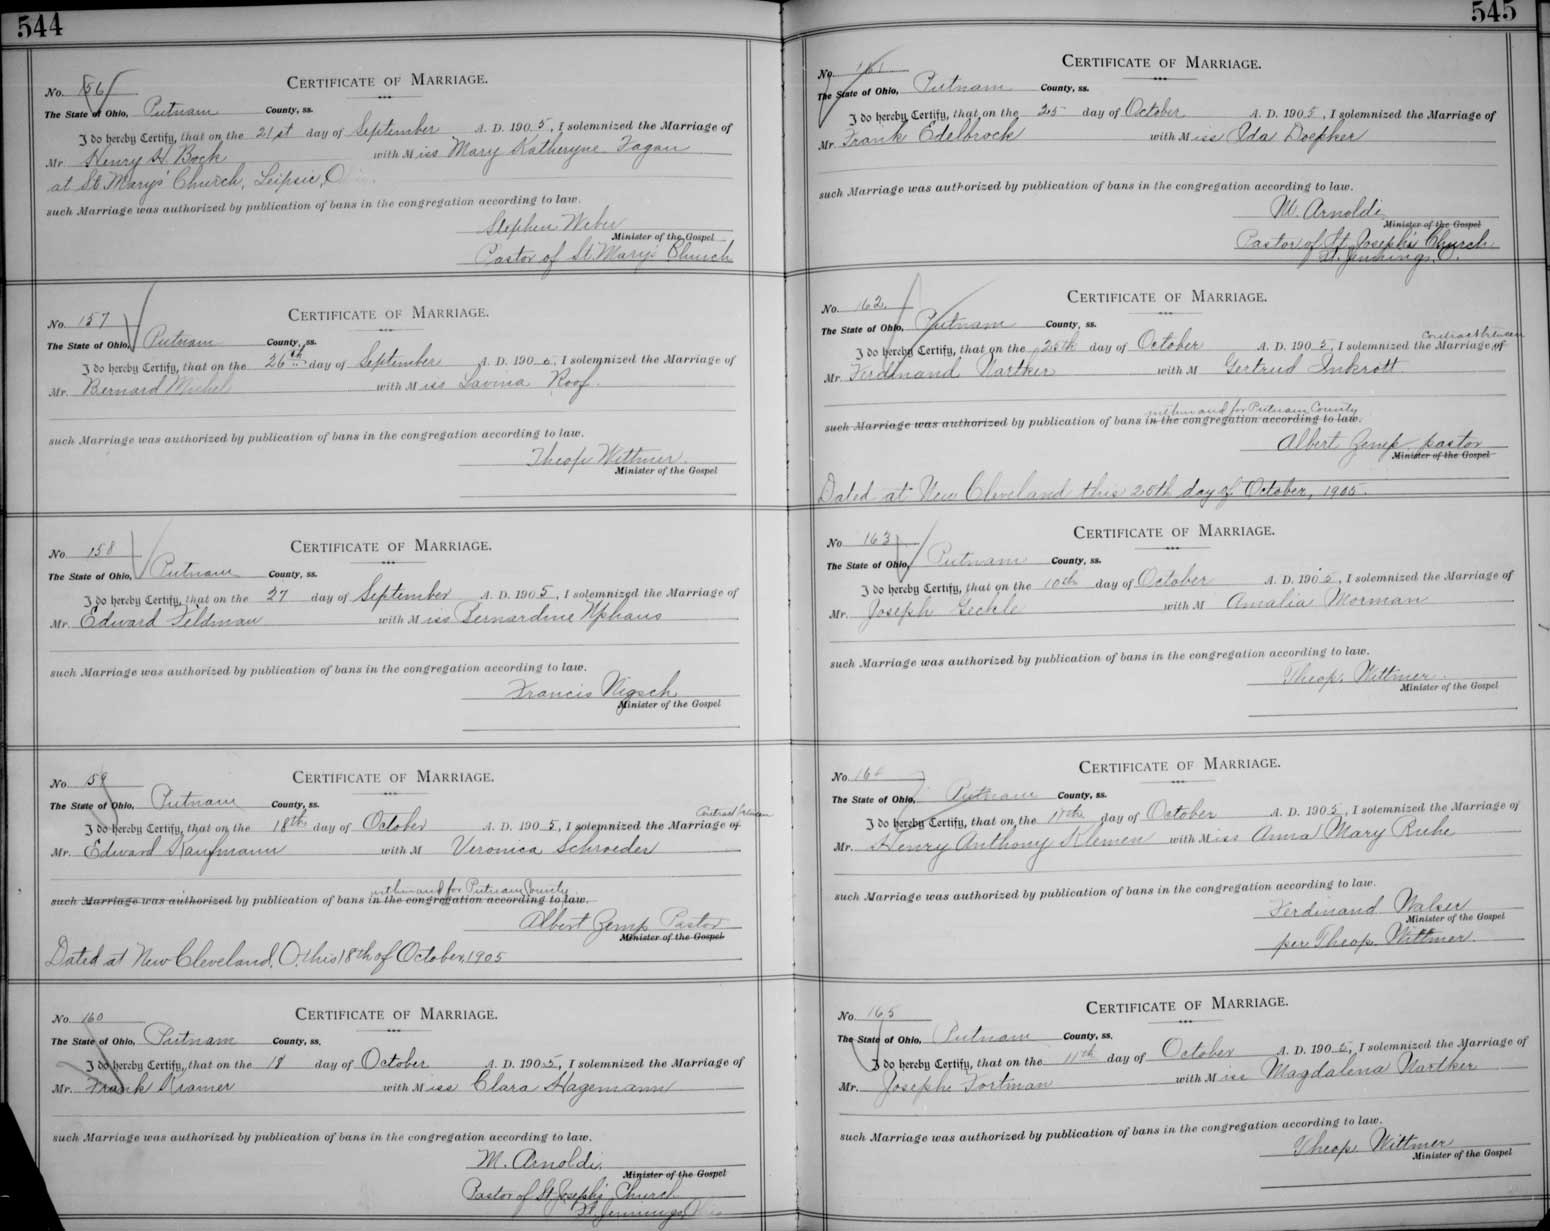 544
No. 156
CERTIFICATE OF MARRIAGE.
The State of Ohio, Putnam County, ss.
I do hereby Certify, that on the 21st day of September A. D. 1905, I solemnized the Marriage of
Mr. Henry H. Bock with Miss Mary Katheryne Fagan
at St. Marys' Church, Leipsic, O
such Marriage was authorized by publication of bans in the congregation according to law.
Stephen Weber
Minister of the Gospel
Pastor of St. Mary's Church
No. 157
CERTIFICATE OF MARRIAGE.
The State of Ohio, Putnam County, ss.
I do hereby Certify, that on the 26th day of September A. D. 1905, I solemnized the Marriage of
Mr. Bernard Michel with Miss Lavina Roof.
such Marriage was authorized by publication of bans in the congregation according to law.
Theop. Wittmer.
Minister of the Gospel
No. 158
CERTIFICATE OF MARRIAGE.
The State of Ohio, Putnam County, ss.
I do hereby Certify, that on the 27 day of September A. D. 1905, I solemnized the Marriage of
Mr. Edward Feldman with Miss Bernardine Uphaus
such Marriage was authorized by publication of bans in the congregation according to law.
Francis Nigsch
Minister of the Gospel
No. 159
CERTIFICATE OF MARRIAGE.
The State of Ohio, Putnam County, ss.
Contract between
I do hereby Certify, that on the 18th day of October A. D. 1905, I solemnized the Marriage of
Mr. Edward Kaufmann with M Veronica Schroeder
within and for Putnam County
such Marriage was authorized by publication of bans in the congregation according to law.
Albert Gemp Pastor
Minister of the Gospel
Dated at New Cleveland, O. this 18th of October, 1905
No. 160
CERTIFICATE OF MARRIAGE.
The State of Ohio, Putnam County, ss.
I do hereby Certify, that on the 18 day of October A. D. 1905, I solemnized the Marriage of
Mr. Frank Kramer with Miss Clara Hagemann
such Marriage was authorized by publication of bans in the congregation according to law.
M. Arnoldi,
Minister of the Gospel
Pastor of St. Joseph's Church
Ft. Jennings,
545
No. 161
CERTIFICATE OF MARRIAGE.
The State of Ohio, Putnam County, ss.
I do hereby Certify, that on the 25 day of October A. D. 1905, I solemnized the Marriage of
Mr. Frank Edelbrock with Miss Ida Doepker
such Marriage was authorized by publication of bans in the congregation according to law.
M. Arnoldi,
Minister of the Gospel
Pastor of St. Joseph's Church
Ft. Jennings, O.
No. 162
CERTIFICATE OF MARRIAGE.
The State of Ohio, Putnam County, ss.
Contract between
I do hereby Certify, that on the 25th day of October A. D. 1905, I solemnized the Marriage of
Mr. Ferdinand Nartker with M Gertrud Inkrott
within and for Putnam County
such Marriage was authorized by publication of bans in the congregation according to law.
Albert Gemp pastor
Minister of the Gospel
Dated at New Cleveland this 25th day of October, 1905.
No. 163
CERTIFICATE OF MARRIAGE.
The State of Ohio, Putnam County, ss.
I do hereby Certify, that on the 10th day of October A. D. 1905, I solemnized the Marriage of
Mr. Joseph Geckle with M Amalia Morman
such Marriage was authorized by publication of bans in the congregation according to law.
Theop. Wittmer.
Minister of the Gospel
No. 164
CERTIFICATE OF MARRIAGE.
The State of Ohio, Putnam County, ss.
I do hereby Certify, that on the day of October A. D. 1905, I solemnized the Marriage of
Mr. Henry Anthony Klemen with Miss Anna Mary Ruhe
such Marriage was authorized by publication of bans in the congregation according to law.
Ferdinand Walser
Minister of the Gospel
per Theop. Wittmer.
No. 165
CERTIFICATE OF MARRIAGE.
The State of Ohio, Putnam County, ss.
I do hereby Certify, that on the 11th day of October A. D. 1905, I solemnized the Marriage of
Mr. Josephe Fortman with Miss Magdalena Nartker
such Marriage was authorized by publication of bans in the congregation according to law.
Theop. Wittmer
Minister of the Gospel